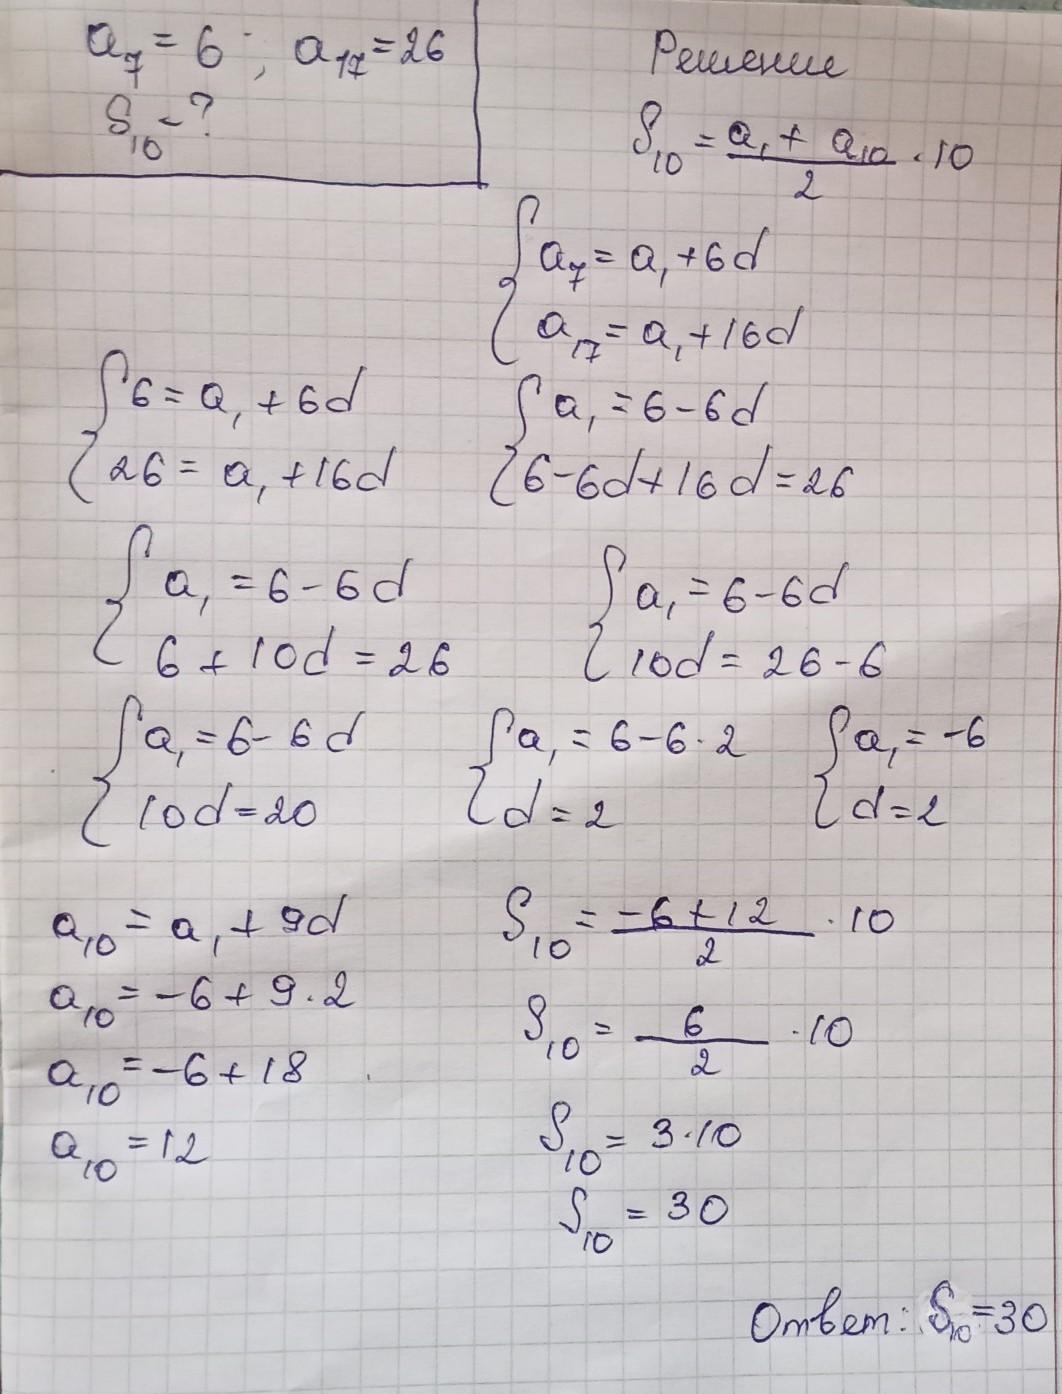 a₇ = 6 ; a₁₇ = 26
S₁₀ - ?
Решение
S₁₀ = (a₁ + a₁₀)/2 · 10
{ a₇ = a₁ + 6d
a₁₇ = a₁ + 16d
{ 6 = a₁ + 6d
26 = a₁ + 16d
{ a₁ = 6 - 6d
6 - 6d + 16d = 26
{ a₁ = 6 - 6d
6 + 10d = 26
{ a₁ = 6 - 6d
10d = 26 - 6
{ a₁ = 6 - 6d
10d = 20
{ a₁ = 6 - 6 · 2
d = 2
{ a₁ = -6
d = 2
a₁₀ = a₁ + 9d
a₁₀ = -6 + 9 · 2
a₁₀ = -6 + 18
a₁₀ = 12
S₁₀ = (-6 + 12)/2 · 10
S₁₀ = 6/2 · 10
S₁₀ = 3 · 10
S₁₀ = 30
Ответ: S₁₀ = 30